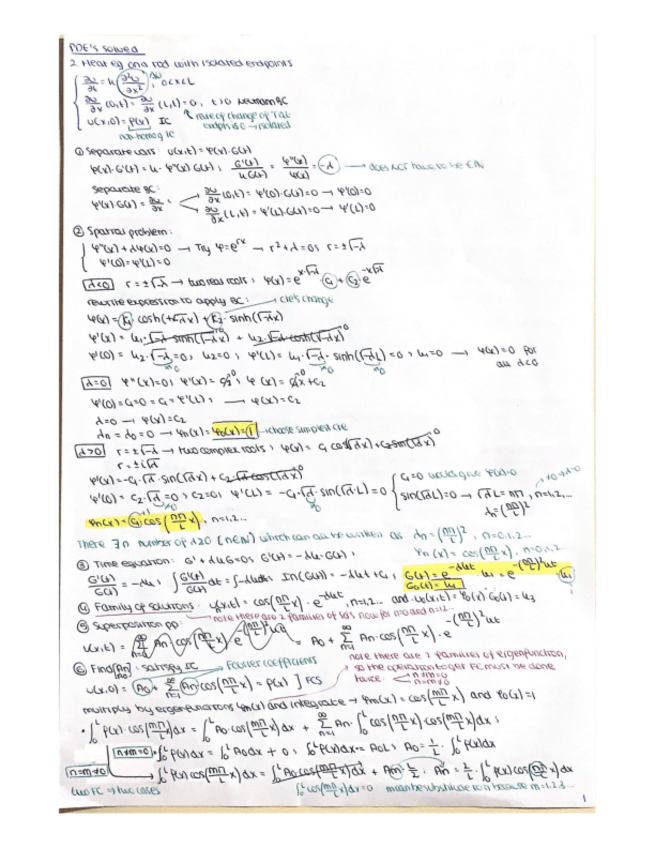 PDE's solved
2. Heat eq on a rod with isolated endpoints
∂u/∂t = k ∂²u/∂x², 0<x<L
∂u/∂x (0,t) = ∂u/∂x (L,t) = 0, t>0 Neumann BC
u(x,0) = f(x) IC
rate of change of T at endpts is 0 → isolated
non-homog IC
① Separate vars: u(x,t) = φ(x)·G(t)
φ(x)·G'(t) = k·φ''(x)G(t); G'(t)/kG(t) = φ''(x)/φ(x) = -λ → does not have to be
Separate BC:
φ'(x)·G(t) = ∂u/∂x;
∂u/∂x (0,t) = φ'(0)·G(t) = 0 → φ'(0) = 0
∂u/∂x (L,t) = φ'(L)·G(t) = 0 → φ'(L) = 0
② Spatial problem:
φ''(x) + λφ(x) = 0 → Try φ = e^rx → r² + λ = 0; r = ±√-λ
φ'(0) = φ'(L) = 0
λ<0 r = ±√-λ → two real roots; φ(x) = e^x√-λ · C₁ + C₂·e^-x√-λ
rewrite expression to apply BC: → cte's change
φ(x) = k₁ cosh(√-λx) + k₂·sinh(√-λx)
φ'(x) = k₁·√-λ sinh(√-λx) + k₂·√-λ cosh(√-λx)
φ'(0) = k₂·√-λ = 0; k₂ = 0; φ'(L) = k₁·√-λ·sinh(√-λL) = 0; k₁ = 0 → φ(x) = 0 for all λ<0
λ=0 φ''(x) = 0; φ'(x) = C₁; φ(x) = C₁x + C₂
φ'(0) = C₁ = 0 = C₁ = φ'(L); → φ(x) = C₂
λ = 0 → φ(x) = C₂
λn = λ₀ = 0 → φn(x) = φ₀(x) = 1 → choose simplest cte
λ>0 r = ±√-λ → two complex roots; φ(x) = C₁ cos(√λx) + C₂ sin(√λx)
r = ±i√λ
φ'(x) = -C₁·√λ·sin(√λx) + C₂√λ cos(√λx)
φ'(0) = C₂·√λ = 0; C₂ = 0; φ'(L) = -C₁·√λ·sin(√λ·L) = 0
C₁ = 0 would give φ(x) = 0
sin(√λL) = 0 → √λL = nπ, n = 1,2,...
λn = (nπ/L)²
φn(x) = C₁ cos(nπ/L x), n = 1,2...
There ∃ n number of λ≥0 (n∈N) which can all be written as λn = (nπ/L)², n = 0,1,2...
φn(x) = cos(nπ/L x), n = 0,1,2
③ Time equation: G' + λkG = 0; G'(t) = -λk·G(t);
G'(t)/G(t) = -λk; ∫ G'(t)/G(t) dt = ∫-λk dt; ln(G(t)) = -λkt + C₁;
G(t) = e^-λkt · k₁ = e^-(nπ/L)²kt · k₁
G₀(t) = k₁
④ Family of solutions: un(x,t) = cos(nπ/L x)·e^-λkt, n = 1,2... and u₀(x,t) = φ₀(x)·G₀(t) = k₃
note there are 2 families of sols now for n=0 and n=1,2...
⑤ Superposition pp:
u(x,t) = ∑ An cos(nπ/L x) e^-(nπ/L)²kt = A₀ + ∑ An·cos(nπ/L x)·e^-(nπ/L)²kt
note there are 2 families of eigenfunction, so the operation to get FC must be done twice: n=m=0 n=m≠0
⑥ Find An: satisfy IC Fourier coefficients
u(x,0) = A₀ + ∑ An·cos(nπ/L x) = f(x) ] FCS
multiply by eigenfunctions φm(x) and integrate → φm(x) = cos(mπ/L x) and φ₀(x) = 1
• ∫₀ᴸ f(x)·cos(mπ/L x)dx = ∫₀ᴸ A₀·cos(mπ/L x)dx + ∑ An·∫₀ᴸ cos(nπ/L x)cos(mπ/L x)dx;
n=m=0 • ∫₀ᴸ f(x)dx = ∫₀ᴸ A₀dx + 0; ∫₀ᴸ f(x)dx = A₀L; A₀ = 1/L·∫₀ᴸ f(x)dx
n=m≠0 → ∫₀ᴸ f(x)cos(mπ/L x)dx = ∫₀ᴸ A₀·cos(mπ/L x)dx + Am·L/2; An = 2/L·∫₀ᴸ f(x)cos(nπ/L x)dx
two FC → two cases ∫₀ᴸ cos(mπ/L x)dx = 0 m can be switched to n because m=1,2,3...
1